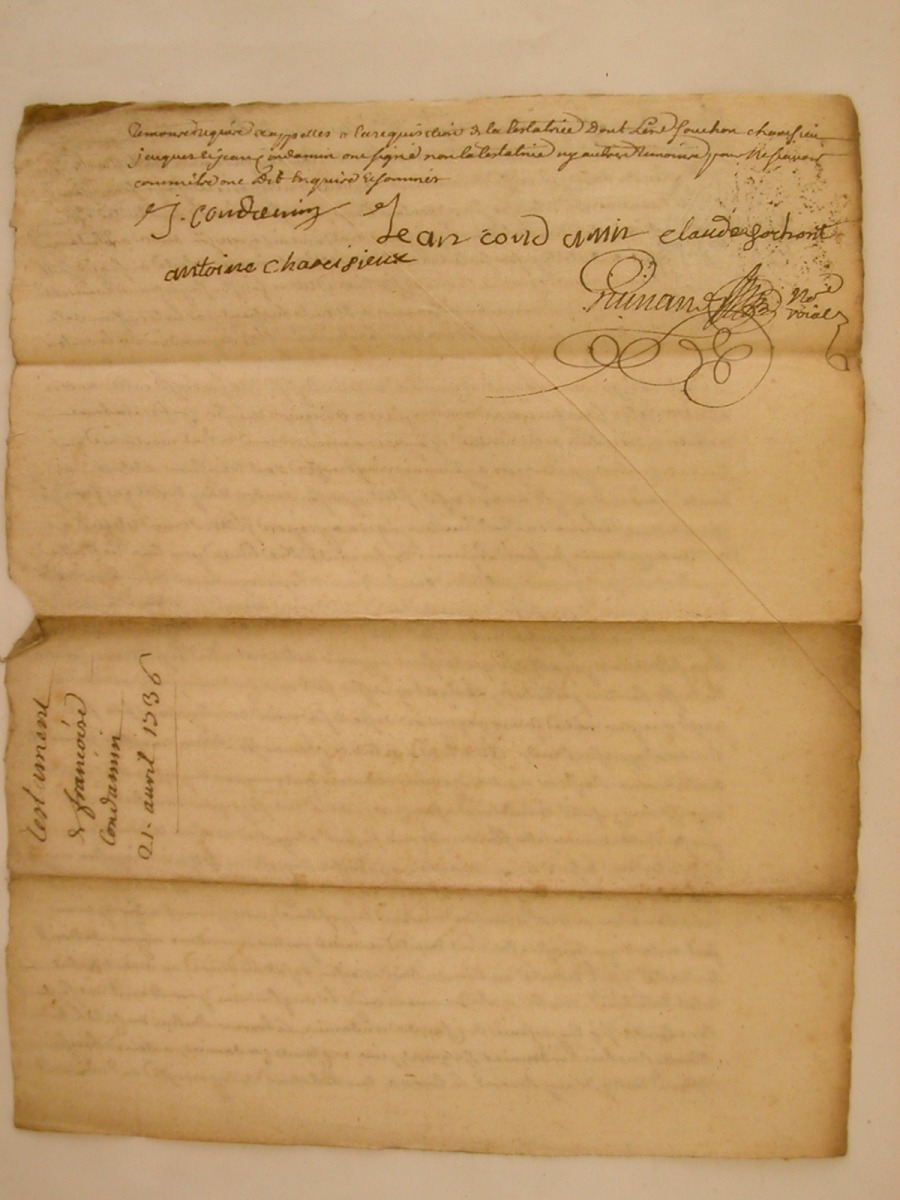 Temoins requis & appelles a la requisition de la testatrice dont led. Souchon charcisieu
jacques & jean condamin ont signé non la testatrice ny autres temoins pour ne scavoir
comme ont dit enquis & sommés
J. condemin
Jean cond amin claude sochont
antoine charcisieux
No.re
roial
testament
de francoise
Condamin
21. avril 1736